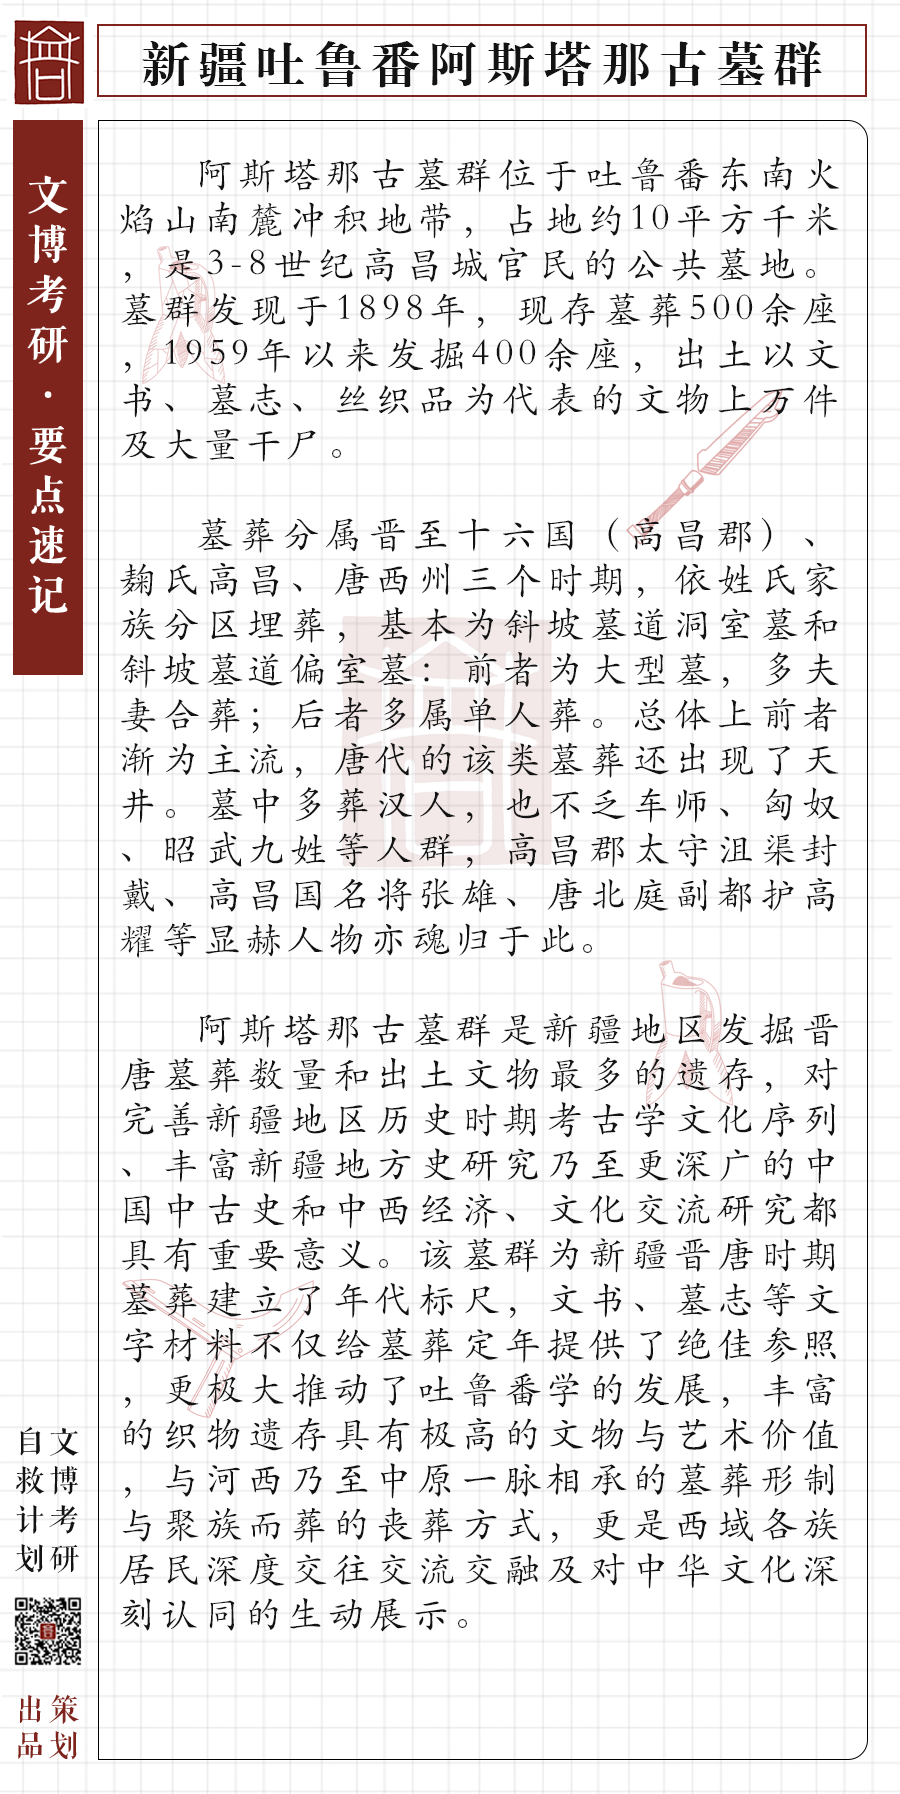 新疆吐鲁番阿斯塔那古墓群
文博考研·要点速记
阿斯塔那古墓群位于吐鲁番东南火
焰山南麓冲积地带，占地约10平方千米
，是3-8世纪高昌城官民的公共墓地。
墓群发现于1898年，现存墓葬500余座
，1959年以来发掘400余座，出土以文
书、墓志、丝织品为代表的文物上万件
及大量干尸。
墓葬分属晋至十六国（高昌郡）、
麹氏高昌、唐西州三个时期，依姓氏家
族分区埋葬，基本为斜坡墓道洞室墓和
斜坡墓道偏室墓：前者为大型墓，多夫
妻合葬；后者多属单人葬。总体上前者
渐为主流，唐代的该类墓葬还出现了天
井。墓中多葬汉人，也不乏车师、匈奴
、昭武九姓等人群，高昌郡太守沮渠封
戴、高昌国名将张雄、唐北庭副都护高
耀等显赫人物亦魂归于此。
阿斯塔那古墓群是新疆地区发掘晋
唐墓葬数量和出土文物最多的遗存，对
完善新疆地区历史时期考古学文化序列
、丰富新疆地方史研究乃至更深广的中
国中古史和中西经济、文化交流研究都
具有重要意义。该墓群为新疆晋唐时期
墓葬建立了年代标尺，文书、墓志等文
字材料不仅给墓葬定年提供了绝佳参照
，更极大推动了吐鲁番学的发展，丰富
的织物遗存具有极高的文物与艺术价值
，与河西乃至中原一脉相承的墓葬形制
与聚族而葬的丧葬方式，更是西域各族
居民深度交往交流交融及对中华文化深
刻认同的生动展示。
文博考研
自救计划
策划
出品